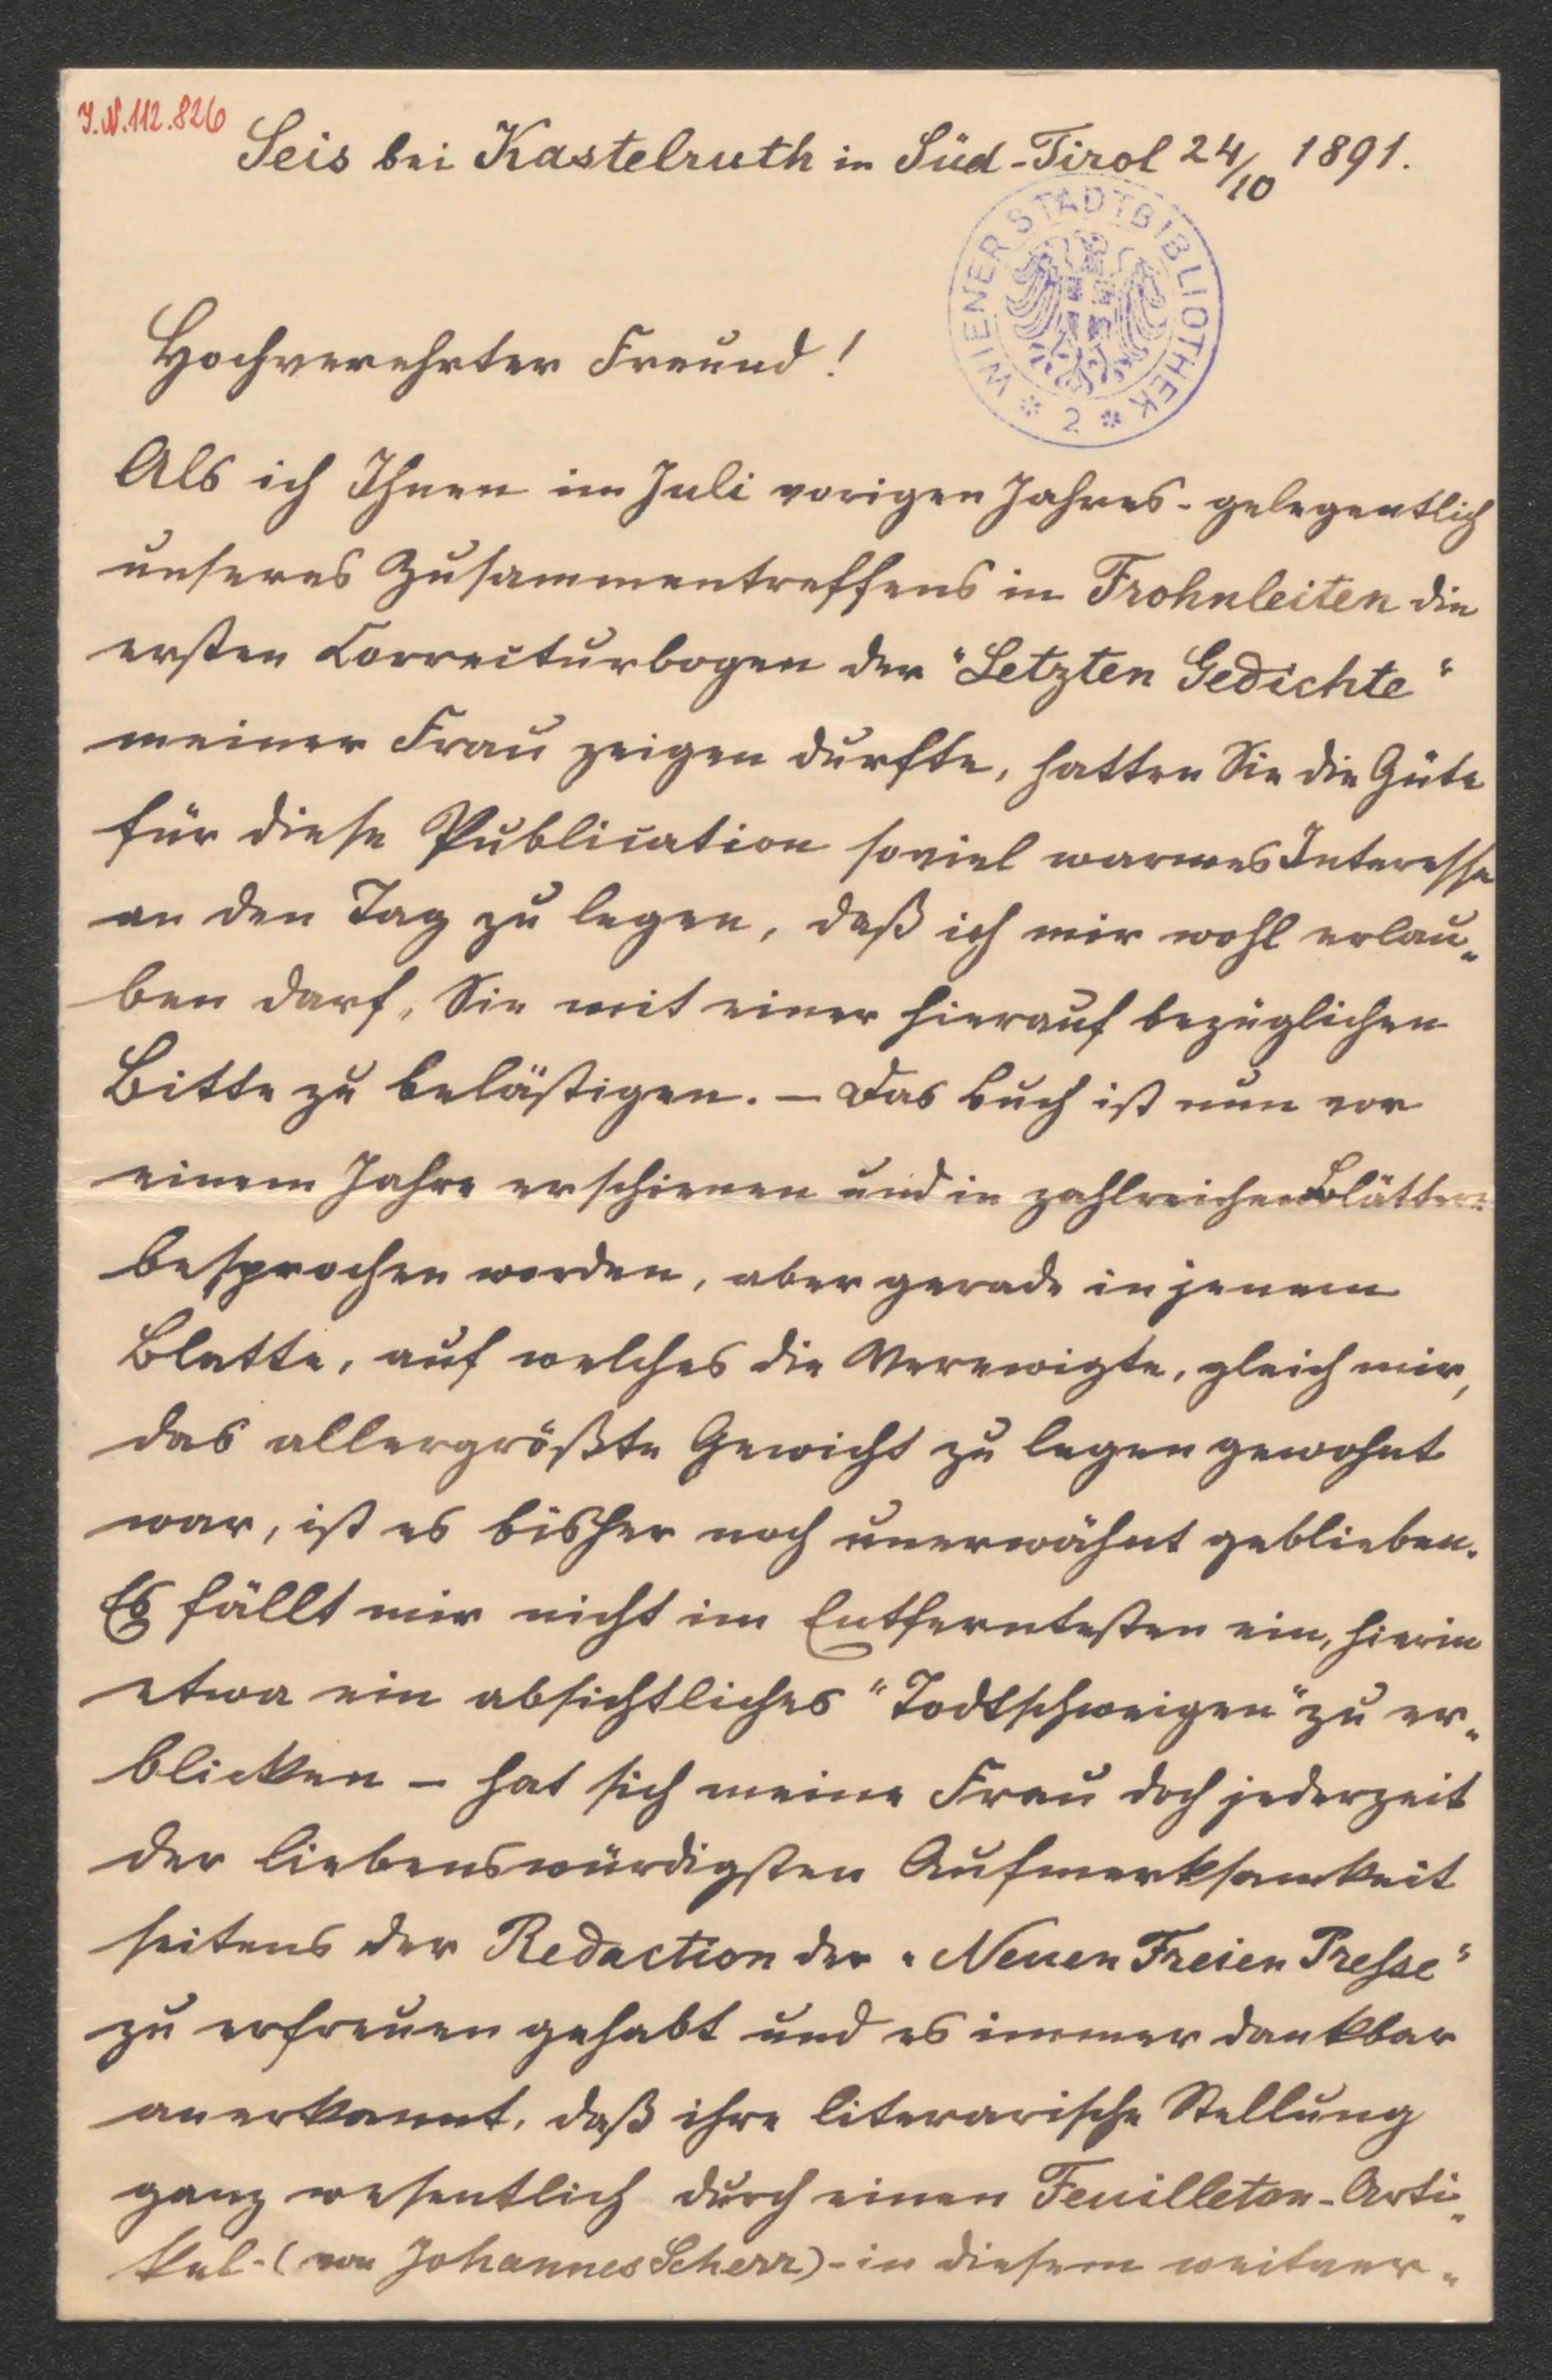 J.N.112.826
Seis bei Kastelruth in Süd-Tirol 24/10 1891.
WIENER STADTBIBLIOTHEK * 2 *
Hochverehrter Freund!
Als ich Ihnen im Juli vorigen Jahres - gelegentlich
unseres Zusammentreffens in Frohnleiten die
ersten Correcturbogen der "Letzten Gedichte"
meiner Frau zeigen durfte, hatten Sie die Güte
für diese Publication soviel warmes Interesse
an den Tag zu legen, daß ich mir wohl erlau-
ben darf, Sie mit einer hierauf bezüglichen
Bitte zu belästigen. – Das Buch ist nun vor
einem Jahre erschienen und in zahlreichen Blättern
besprochen worden, aber gerade in jenem
Blatte, auf welches die Verewigte, gleich mir,
das allergrößte Gewicht zu legen gewohnt
war, ist es bisher noch unerwähnt geblieben.
Es fällt mir nicht im Entferntesten ein, hierin
etwa ein absichtliches "Todtschweigen" zu er-
blicken – hat sich meine Frau doch jederzeit
der liebenswürdigsten Aufmerksamkeit
seitens der Redaction der "Neuen Freien Presse"
zu erfreuen gehabt und es immer dankbar
anerkannt, daß ihre literarische Stellung
ganz wesentlich durch einen Feuilleton-Arti-
kel - (von Johannes Scherr) - in diesem weitver-